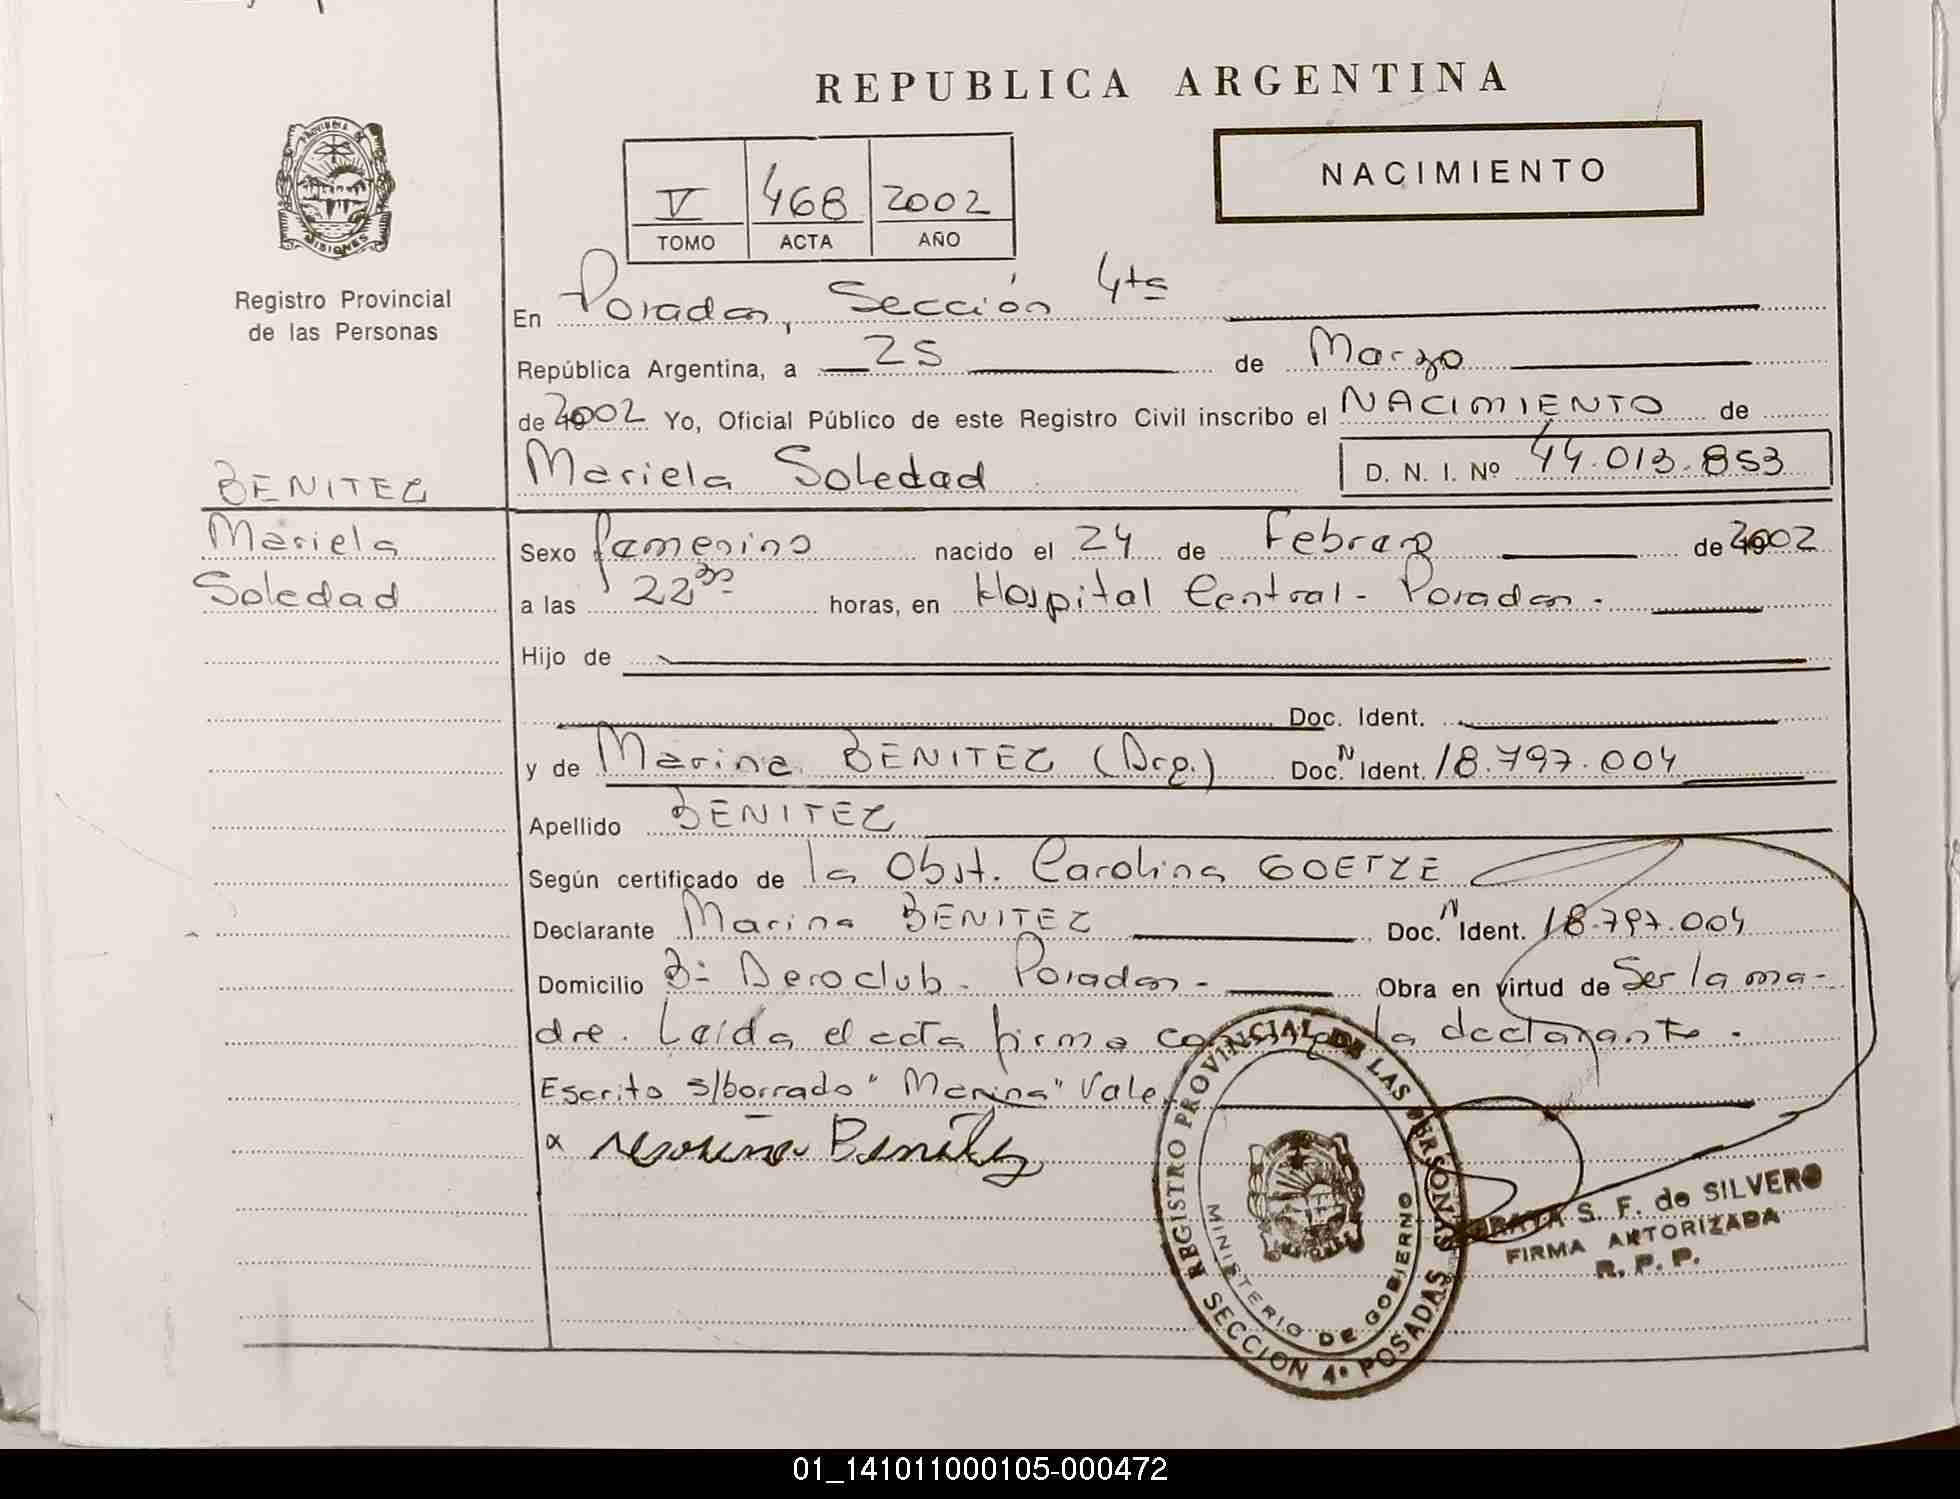 REPUBLICA ARGENTINA
PROVINCIA DE
MISIONES
Registro Provincial
de las Personas
V 468 2002
TOMO ACTA AÑO
NACIMIENTO
En Posadas, Sección 4ta
República Argentina, a 25 de Marzo
de 2002 Yo, Oficial Público de este Registro Civil inscribo el NACIMIENTO de
Mariela Soledad D. N. I. Nº 44.013.853
BENITEZ
Mariela
Soledad
Sexo femenino nacido el 24 de Febrero de 2002
a las 22 30 horas, en Hospital Central - Posadas.
Hijo de
Doc. Ident.
y de Marina BENITEZ (Arg.) Doc. N Ident. 18.797.004
Apellido BENITEZ
Según certificado de la Obst. Carolina GOETZE
Declarante Marina BENITEZ Doc. N Ident. 18.797.004
Domicilio Bº Aeroclub - Posadas - Obra en virtud de Ser la ma-
dre. Leída el acta firma conmigo la declarante.
Escrito s/borrado "Marina" Vale.
Marina Benitez
REGISTRO PROVINCIAL DE LAS PERSONAS
MINISTERIO DE GOBIERNO
SECCION 4ª POSADAS
S. F. de SILVERO
FIRMA AUTORIZADA
R. P. P.
01_141011000105-000472